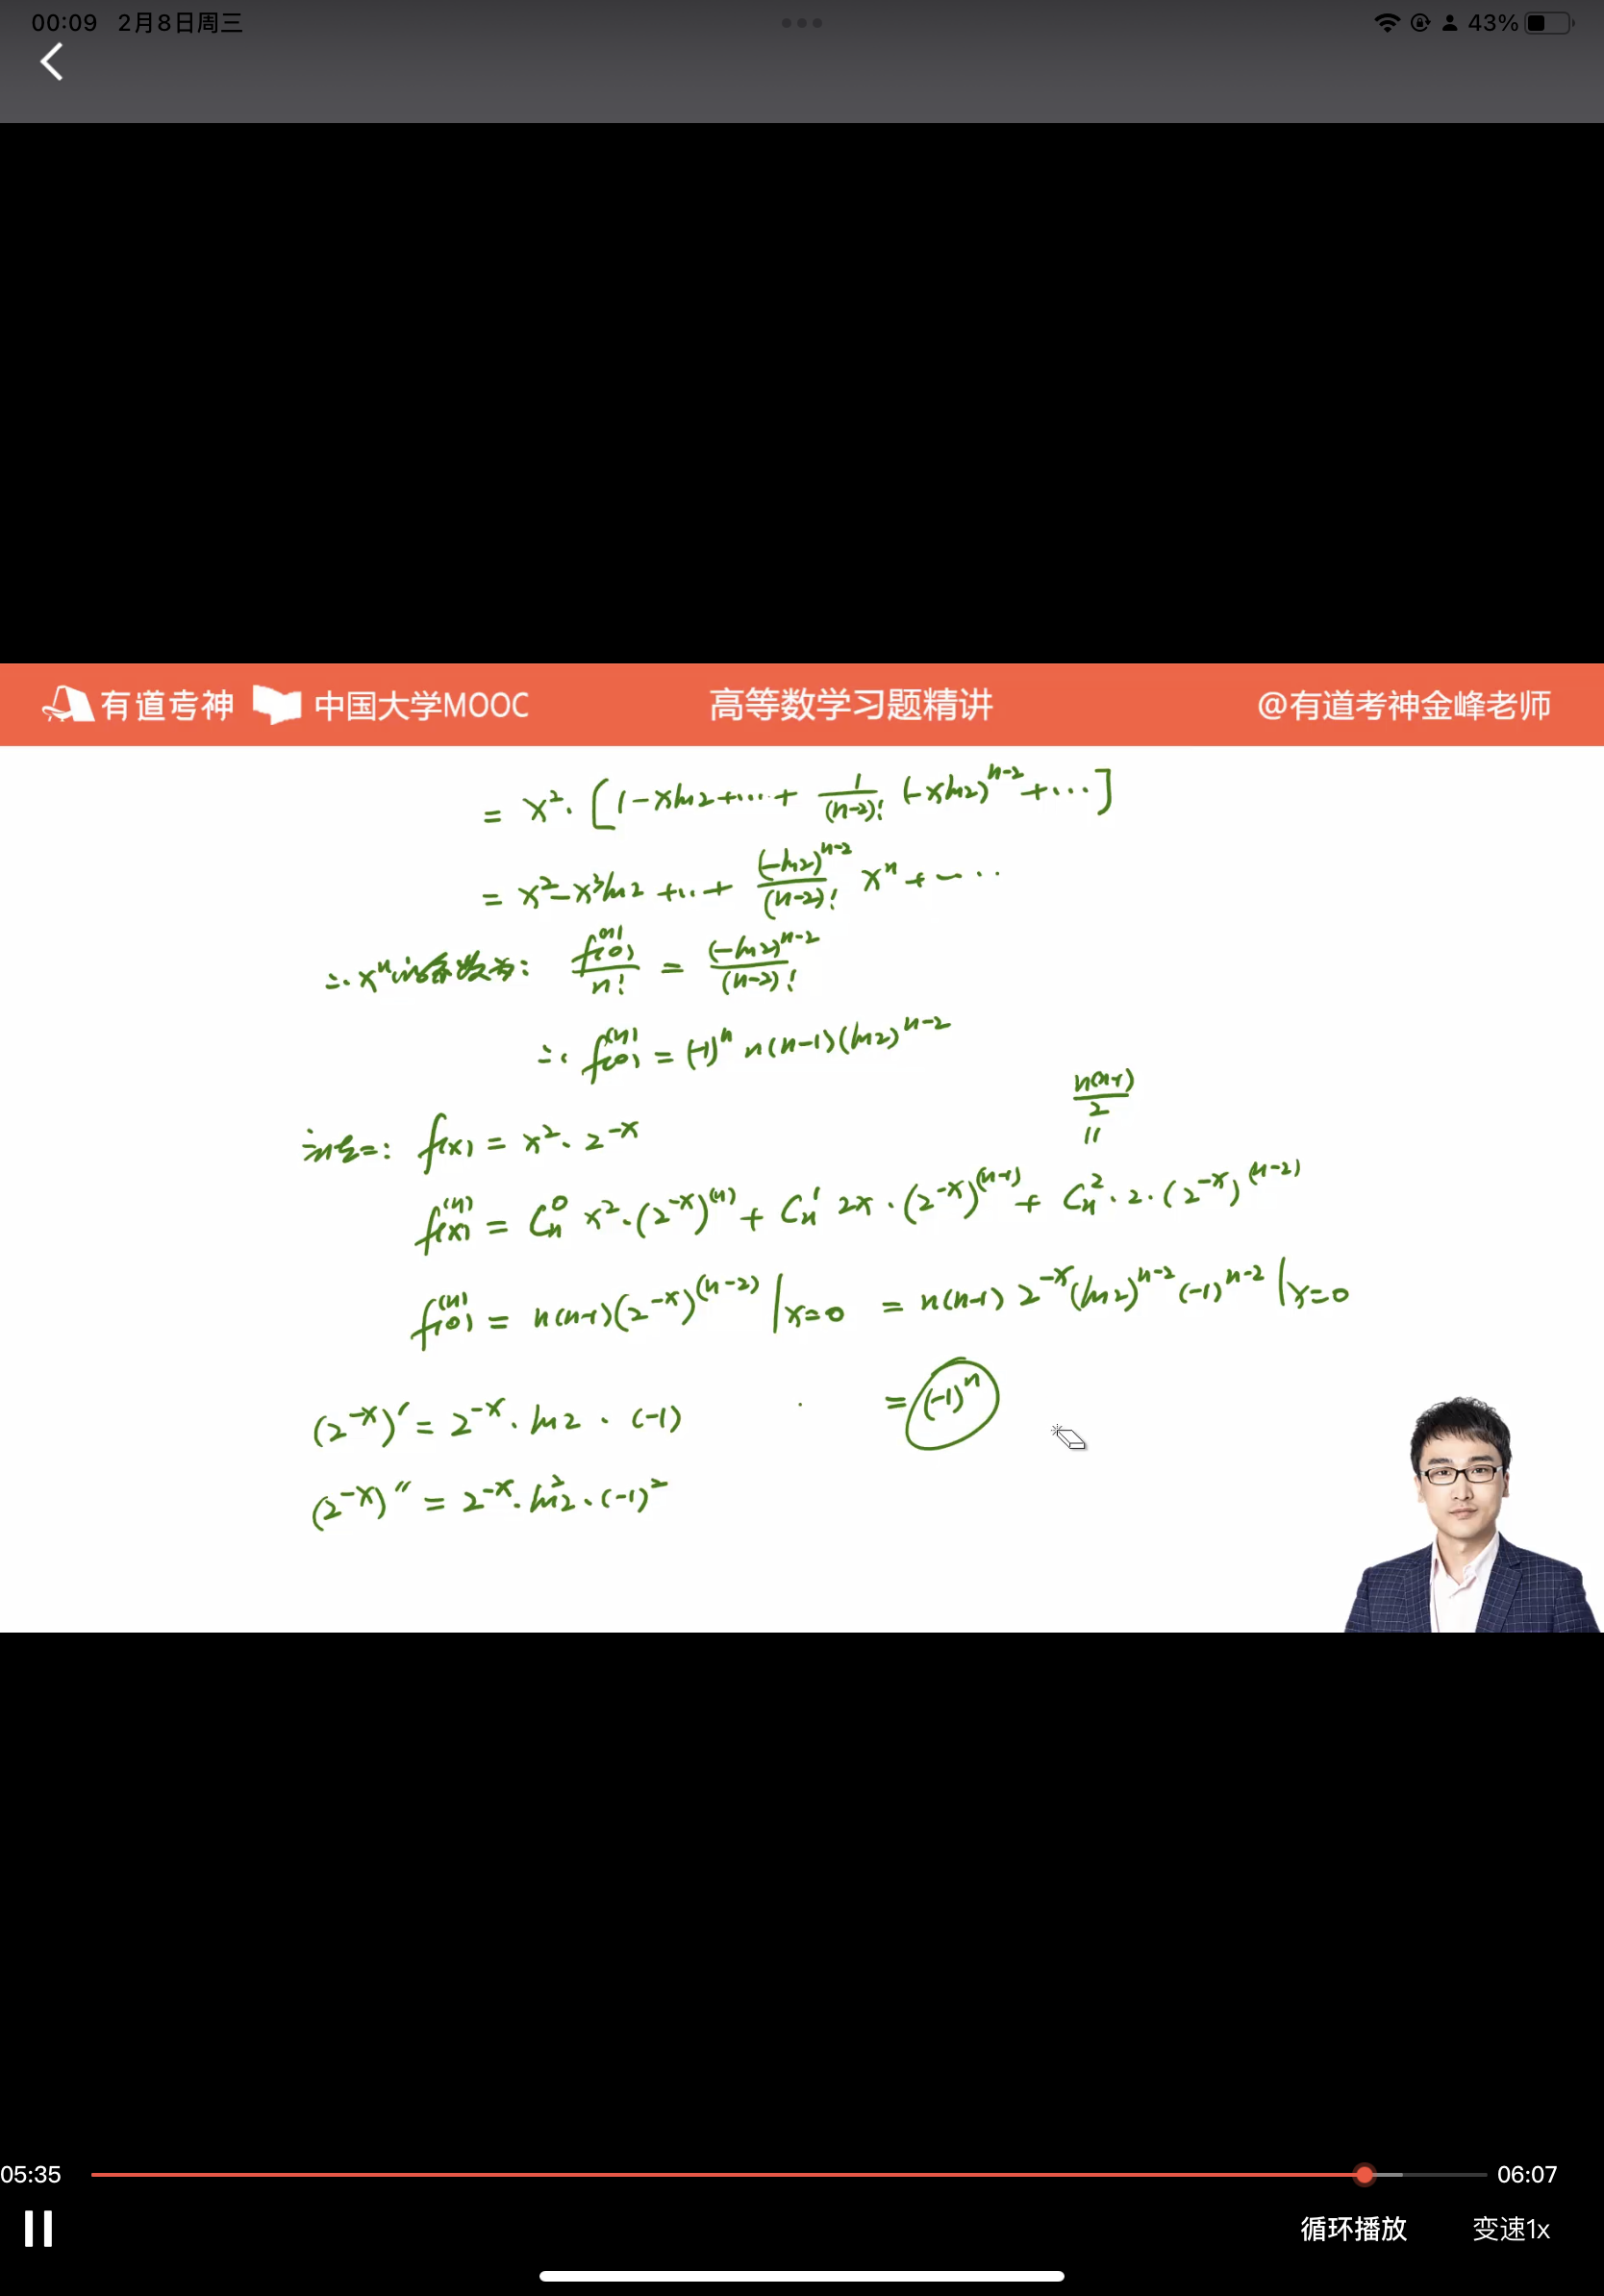 00:09 2月8日周三 43%
有道考神 中国大学MOOC 高等数学习题精讲 @有道考神金峰老师
= x²·[1-xln2+…+ 1/(n-2)! (-xln2)^(n-2)+…]
= x²-x³ln2+…+ (-ln2)^(n-2)/(n-2)! xⁿ+…
∴ xⁿ的系数为: f^(n)(0)/n! = (-ln2)^(n-2)/(n-2)!
∴ f^(n)(0) = (-1)^n n(n-1)(ln2)^(n-2)
n(n-1)/2
"
法二: f(x) = x²·2^(-x)
f^(n)(x) = C_n^0 x²·(2^(-x))^(n) + C_n^1 2x·(2^(-x))^(n-1) + C_n^2·2·(2^(-x))^(n-2)
f^(n)(0) = n(n-1)(2^(-x))^(n-2)|x=0 = n(n-1) 2^(-x)(ln2)^(n-2)(-1)^(n-2)|x=0
(2^(-x))' = 2^(-x)·ln2·(-1) = (-1)^n
(2^(-x))" = 2^(-x)·ln²2·(-1)²
05:35 06:07
循环播放 变速1x